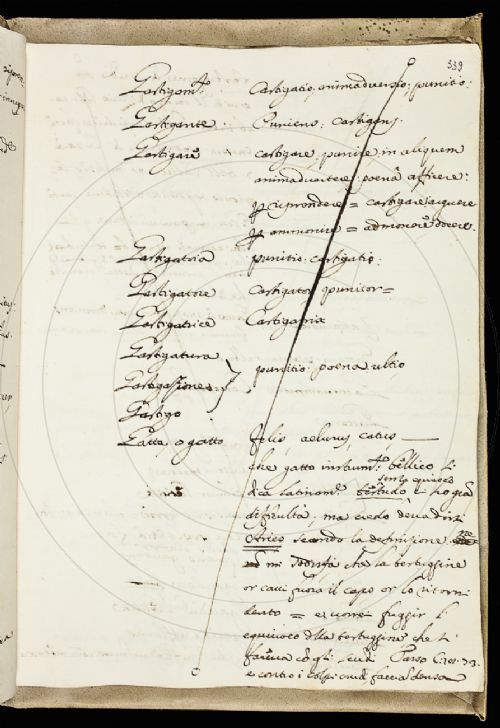 339
Gastigom.to Castigatio, animadversio, punitio:
Gastigante. Puniens. Castigans.
Gastigare castigare, punire, in aliquem
animadvertere: poena afficere:
p riprendere = castigare, arguere
p ammonire = admonere, docere.
Gastigatoria punitio: castigatio:
Gastigatore Castigator, punitor =
Gastigatrice Castigatrix
Gastigatura
Gastigasione punitio: poena, ultio
Gastigo
Gatta, o gatto felis, aelurus, catus —
che gatto instrum.to bellico si
dica latinam.te
difficultà, ma credo deva dirsi
Aries secondo la definisione
che la testuggine
or cavi fuora il capo or lo ritorni
dentro = e vorrei fuggir l
equivoco della testuggine che si
faceva con gli scudi Tasso C.
e contro i colpi